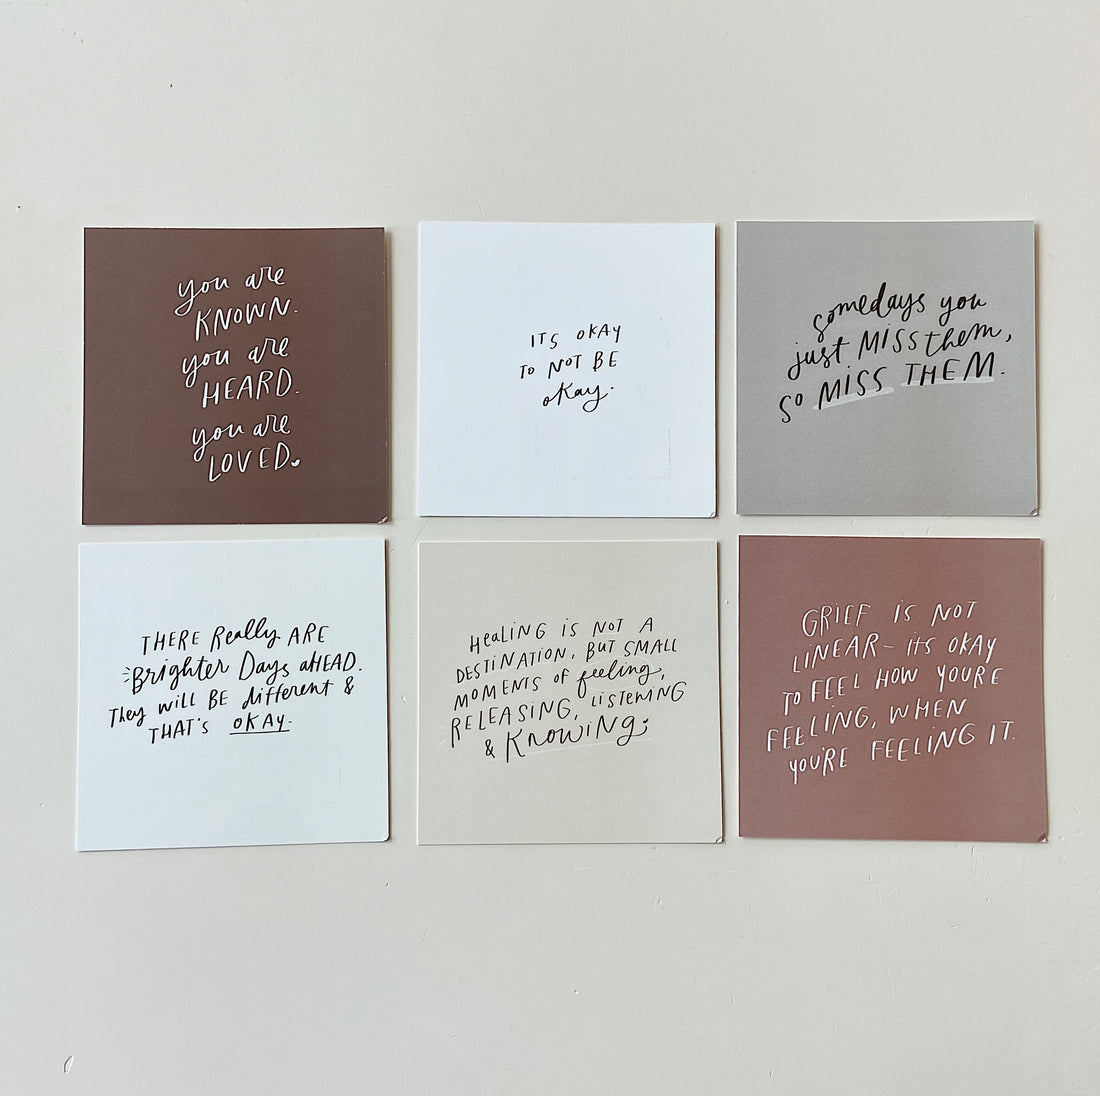 you are
KNOWN.
you are
HEARD.
you are
LOVED.
ITS OKAY
TO NOT BE
okay.
somedays you
just MISS them,
SO MISS THEM.
THERE Really ARE
Brighter Days aHEAD.
They will BE different &
THAT'S OKAY.
HeaLING IS NOT A
DESTINATION, BUT SMALL
MOMENTS OF feeling,
RELEASING, LISTENING
& KNOWING.
GRIEF IS NOT
LINEAR - ITS OKAY
TO FEEL HOW YOU'RE
FEELING, WHEN
YOU'RE FEELING IT.